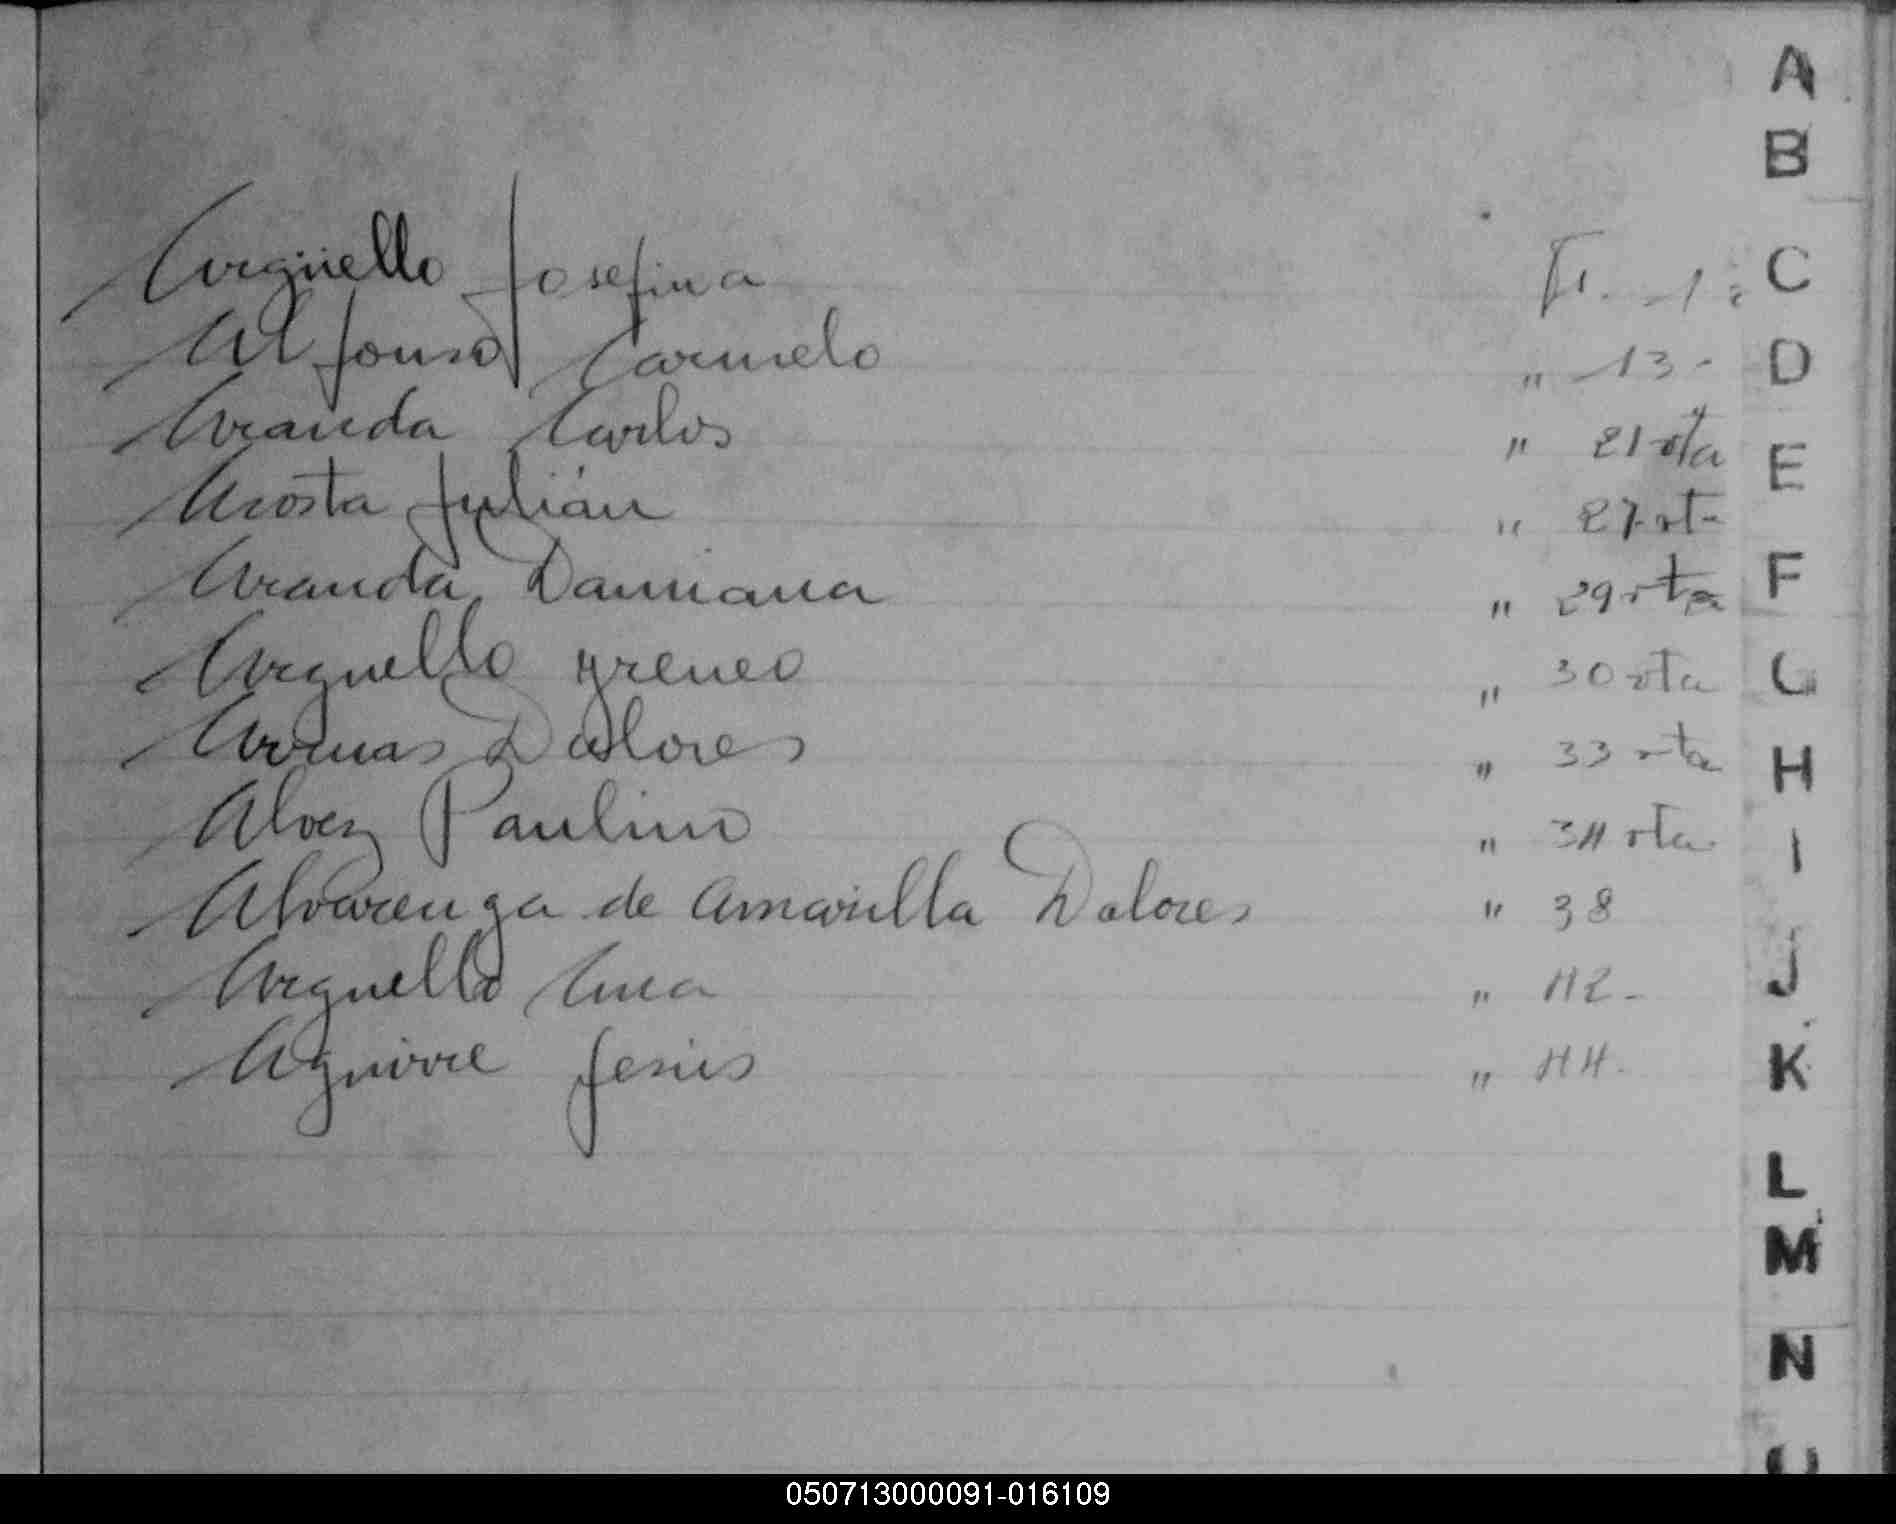 Argüello Josefina Fl. 1
Alfonso Carmelo " 13-
Aranda Carlos " 21 vta
Acosta Julián " 27 vt-
Aranda Damiana " 29 vta
Arguello Yreneo " 30 vta
Armas Dalores " 33 vta
Alvez Paulino " 34 vta.
Alvarenga de Amarilla Dalores " 38
Arguello Ana " 42-
Aguirre Jesús " 44.
A
B
C
D
E
F
G
H
I
J
K
L
M
N
050713000091-016109